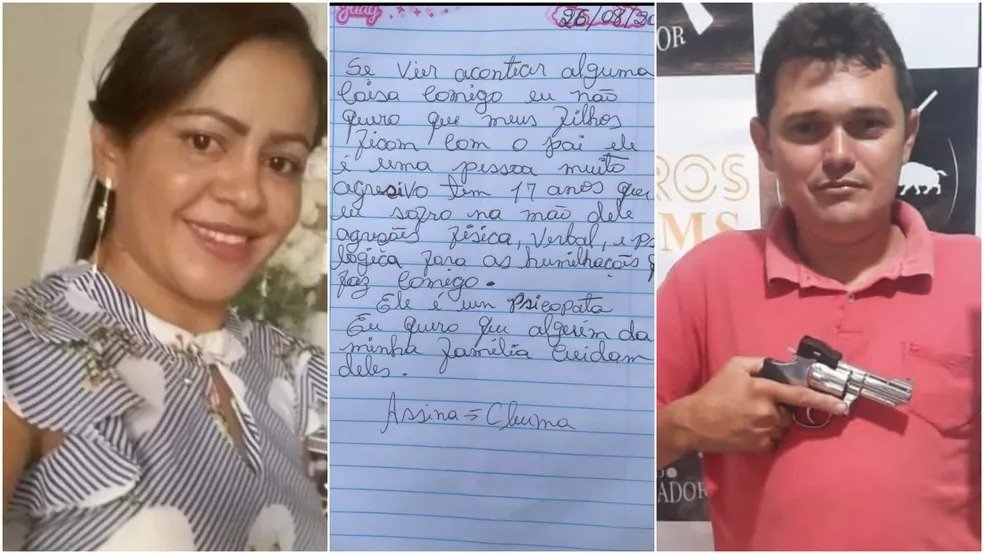 judy
26/08/20
Se Vier aconticar alguma
Coisa Comigo eu não
quero que meus filhos
ficam com o pai ele
é uma pessoa muito
agresivo tem 17 anos que
eu sofro na mão dele
agreções física, verbal, e ps
lógica fora as humilhações q
faz comigo.
Ele é un Psicopata
Eu quero que alguem da
minha família Cuidam
deles.
Assina = Cleuma
OR
ADOR
ROS
MS
ADOR